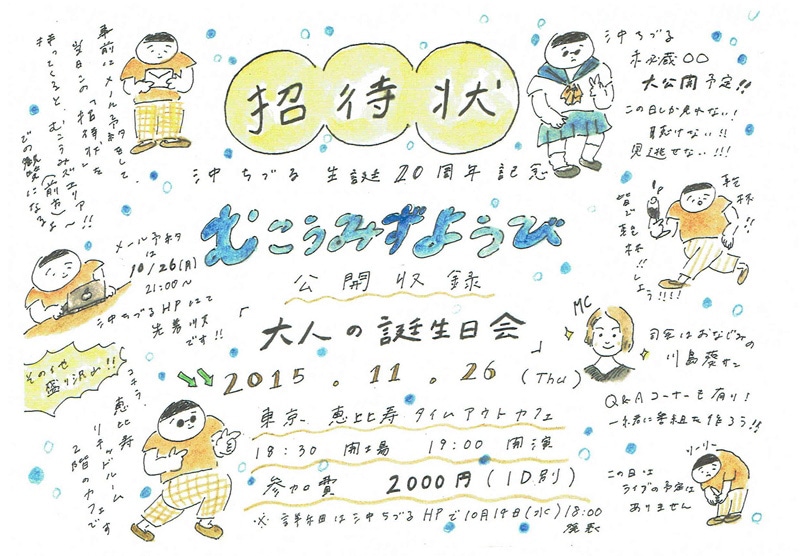 招待状
沖ちづる 生誕20周年記念
むこうみずようび
公開収録
「大人の誕生日会」
2015.11.26 (Thu)
東京 恵比寿タイムアウトカフェ
18:30 開場 19:00 開演
参加費 2000円(1D別)
※詳細は沖ちづるHPで10月14日(水)18:00
発表
事前にメール予約をして
当日この「招待状」を
持ってくると、むこうみズエリア
(前方)
での観覧になるよ〜!!
メール予約
は
10/26(月)
21:00〜
沖ちづるHPにて
先着順
です!!
その他
盛り沢山!!
コチラ、
恵比寿
リキッドルーム
2階のカフェです
沖ちづる
未収蔵〇〇
大公開予定!!
この日しか見れない!
見逃せない!!!
乾杯!!
皆で乾杯
しよう!!!
MC
司会はおなじみの
川島葵サン
Q&Aコーナーも有り!
一緒に番組を作ろう!!
この日は
ライブの予定は
ありません